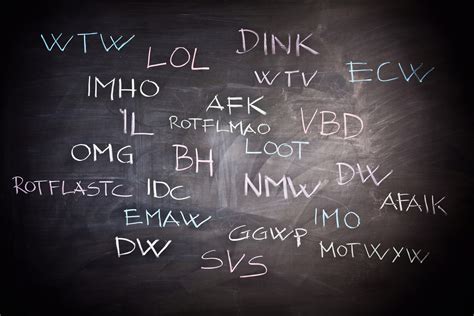 WTW
LOL
DINK
IMHO
WTV
ECW
AFK
IL
ROTFLMAO
VBD
OMG
BH
LOOT
ROTFLASTC
IDC
NMW
DW
AFAIK
EMAW
IMO
DW
GGWP
MOTWYW
SVS